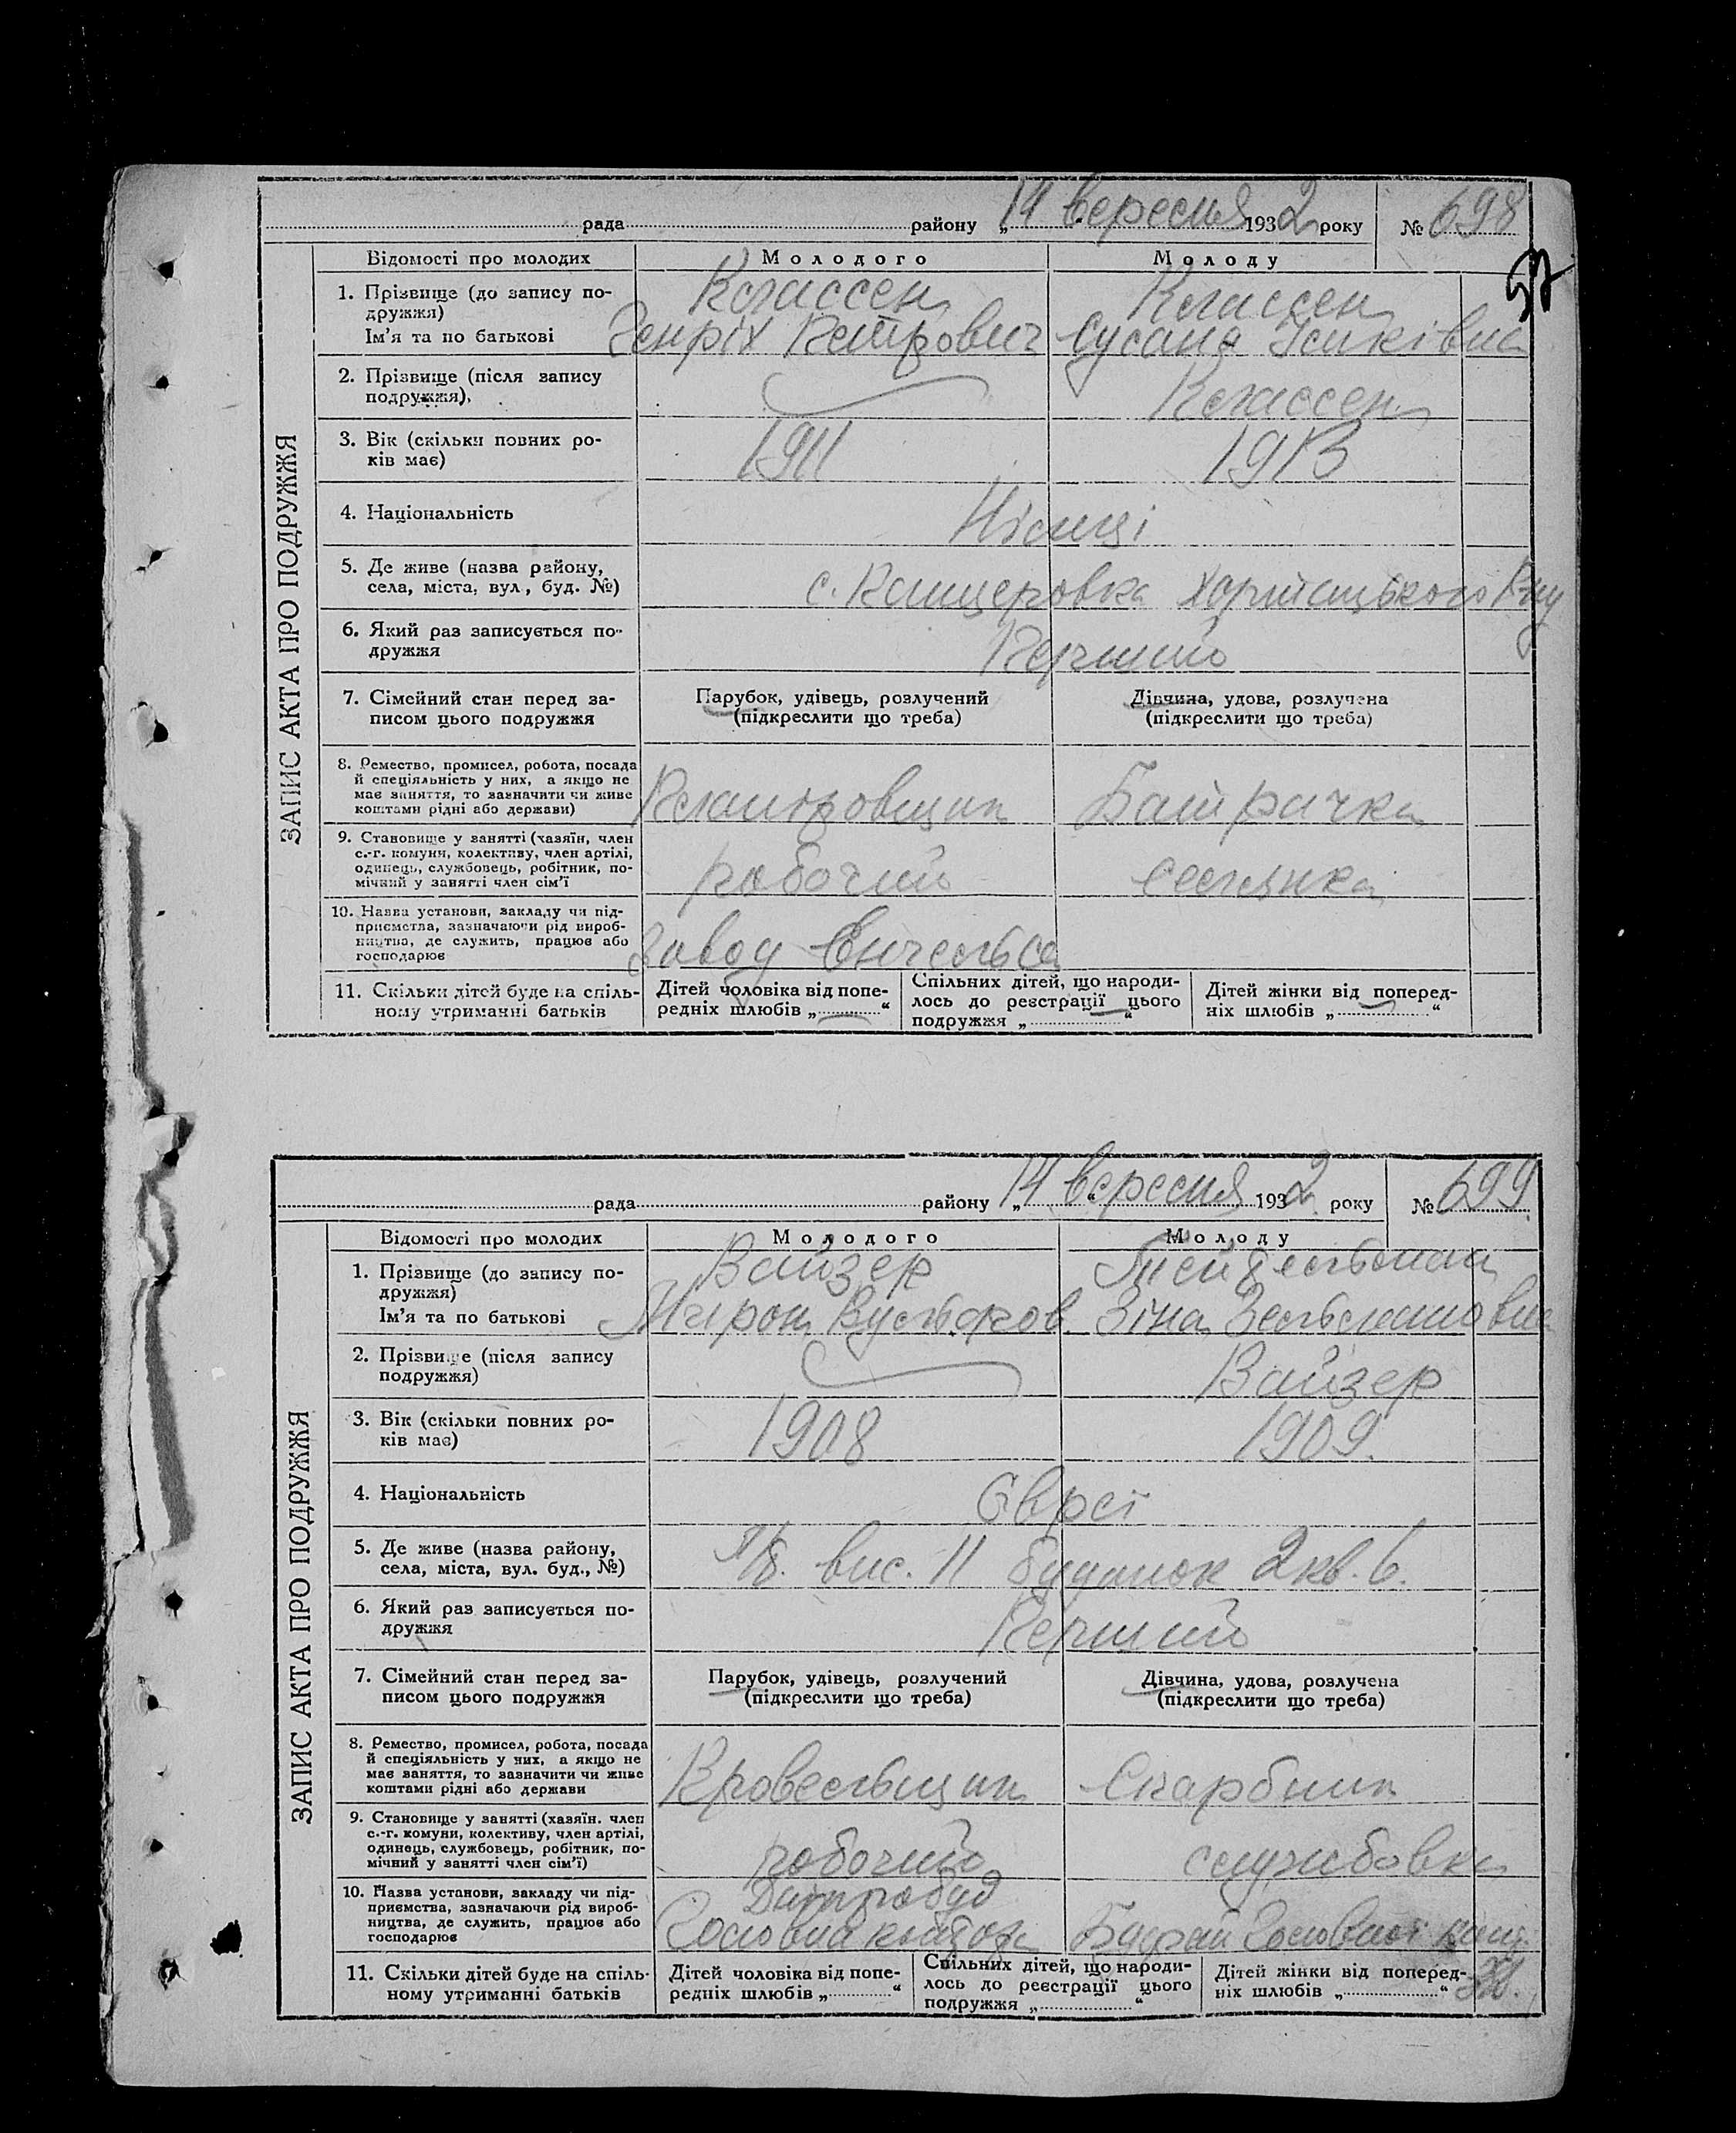 рада района „14 вересня 1932 року № 698
57
ЗАПИС АКТА ПРО ПОДРУЖЖЯ
Відомості про молодих Молодого Молоду
1. Прізвище (до запису по-
дружжя)
Ім'я та по батькові
Классен Классен
Генріх Петрович Сусана
2. Прізвище (після запису
подружжя),
Классен
3. Вік (скільки повних ро-
ків має)
1911 1913
4. Національність
Німці
5. Де живе (назва району,
села, міста, вул, буд. №)
с. Канцеровка Хортицького
6. Який раз записується по-
дружжя
Перший
7. Сімейний стан перед за-
писом цього подружжя
Парубок, удівець, розлучений
(підкреслити що треба)
Дівчина, удова, розлучена
(підкреслити що треба)
8. Ремество, промисел, робота, посада
й спеціяльність у них, а якщо не
має заняття, то зазначити чи живе
коштами рідні або держави)
Планіровщик Батрачка
9. Становище у занятті (хазяїн, член
с.-г. комуни, колективу, член артілі,
одинець, службовець, робітник, по-
мічний у занятті член сім'ї
робочий селянка
10. Назва установи, закладу чи під-
приємства, зазначаючи рід вироб-
ництва, де служить, працює або
господарює
Завод Енгельса
11. Скільки дітей буде на спіль-
ному утриманні батьків
Дітей чоловіка від попе-
редніх шлюбів „ “
Спільних дітей, що народи-
лось до реєстрації цього
подружжя „ “
Дітей жінки від поперед-
ніх шлюбів „ “
рада району „14 вересня 1932 року № 699
ЗАПИС АКТА ПРО ПОДРУЖЖЯ
Відомості про молодих Молодого Молоду
1. Прізвище (до запису по-
дружжя)
Ім'я та по батькові
Вайзер
Мирон Зіна
2. Прізвище (після запису
подружжя)
Вайзер
3. Вік (скільки повних ро-
ків має)
1908 1909.
4. Національність
Євреї
5. Де живе (назва району,
села, міста, вул. буд., №)
вис. 11 будинок 2 кв. 6.
6. Який раз записується по-
дружжя
Перший
7. Сімейний стан перед за-
писом цього подружжя
Парубок, удівець, розлучений
(підкреслити що треба)
Дівчина, удова, розлучена
(підкреслити що треба)
8. Ремество, промисел, робота, посада
й спеціяльність у них, а якщо не
має заняття, то зазначити чи живе
коштами рідні або держави
Кровельщик Скарбник
9. Становище у занятті (хазяїн. член
с.-г. комуни, колективу, член артілі,
одинець, службовець, робітник, по-
мічний у занятті член сім'ї)
робочий службовка
10. Назва установи, закладу чи під-
приємства, зазначаючи рід вироб-
ництва, де служить, працює або
господарює
Дніпробуд
Головна контора Головної
11. Скільки дітей буде на спіль-
ному утриманні батьків
Дітей чоловіка від попе-
редніх шлюбів „ “
Спільних дітей, що народи-
лось до реєстрації цього
подружжя „ “
Дітей жінки від поперед-
ніх шлюбів „ “